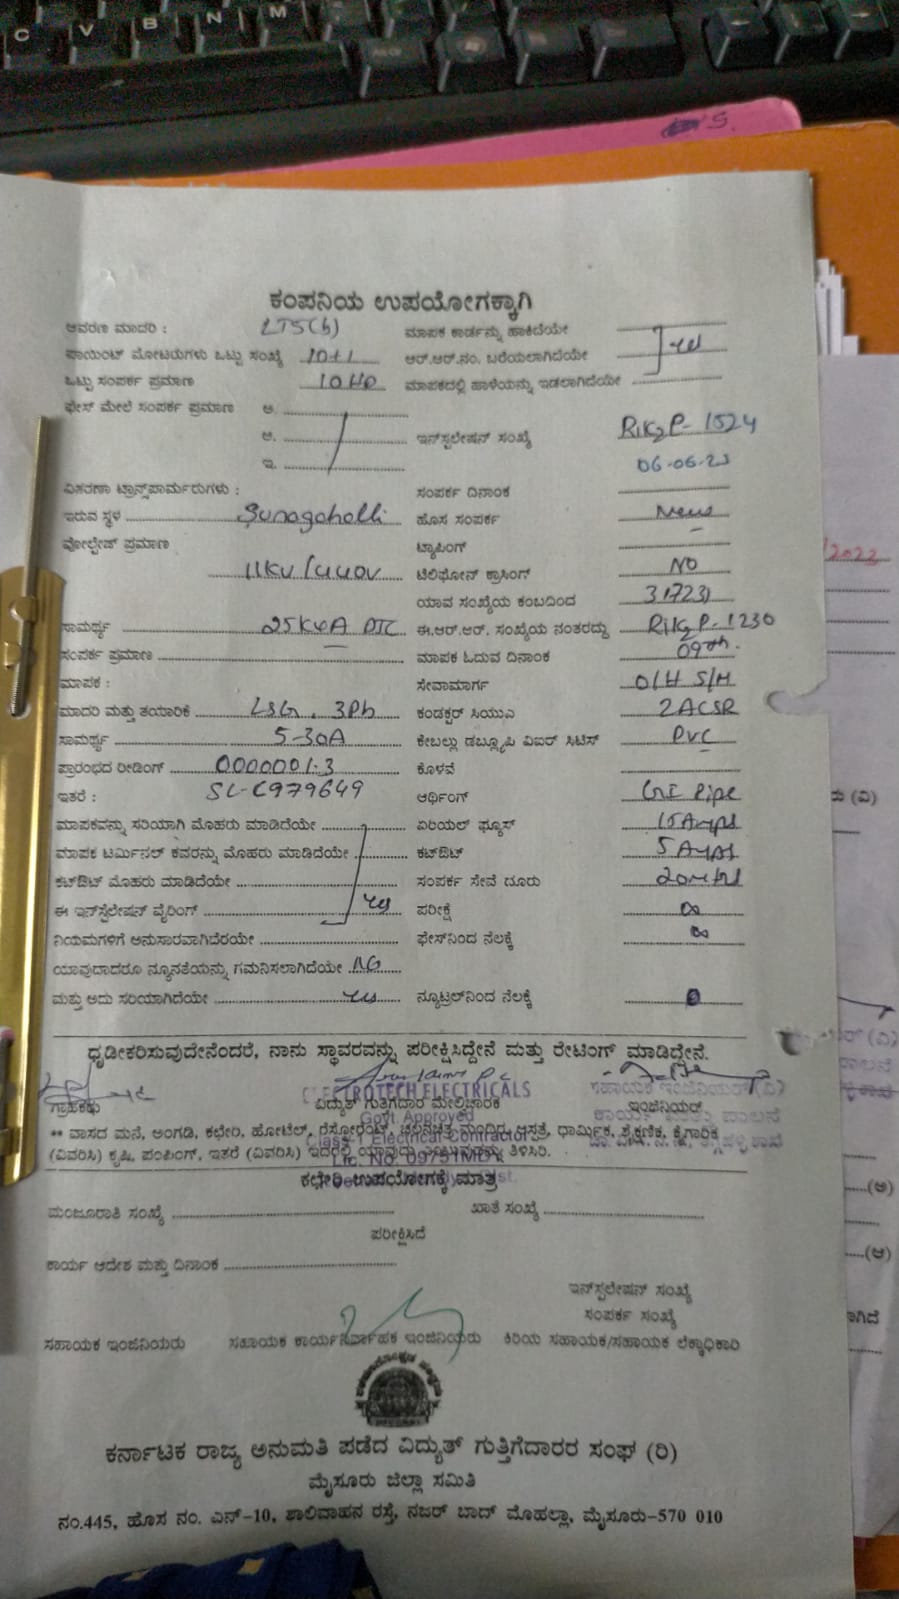 ಕಂಪನಿಯ ಉಪಯೋಗಕ್ಕಾಗಿ
ಆವರಣ ಮಾದರಿ : LT5(b) ಮಾಪಕ ಕಾರ್ಡನ್ನು ಹಾಕಿದೆಯೇ
ಪಾಯಿಂಟ್ ಮೋಟರುಗಳು ಒಟ್ಟು ಸಂಖ್ಯೆ 10+1 ಆರ್.ಆರ್.ನಂ. ಬರೆಯಲಾಗಿದೆಯೇ yes
ಒಟ್ಟು ಸಂಪರ್ಕ ಪ್ರಮಾಣ 10HP ಮಾಪಕದಲ್ಲಿ ಹಾಳೆಯನ್ನು ಇಡಲಾಗಿದೆಯೇ
ಫೇಸ್ ಮೇಲೆ ಸಂಪರ್ಕ ಪ್ರಮಾಣ ಅ.
ಆ. ಇನ್‌ಸ್ಟಲೇಷನ್ ಸಂಖ್ಯೆ 1524
ಇ. 06-06-23
ವಿತರಣಾ ಟ್ರಾನ್ಸ್‌ಫಾರ್ಮರುಗಳು : ಸಂಪರ್ಕ ದಿನಾಂಕ
ಇರುವ ಸ್ಥಳ Sunagoholli ಹೊಸ ಸಂಪರ್ಕ New
ವೋಲ್ಟೇಜ್ ಪ್ರಮಾಣ ಟ್ಯಾಪಿಂಗ್
11KV/440V ಟೆಲಿಫೋನ್ ಕ್ರಾಸಿಂಗ್ NO
ಯಾವ ಸಂಖ್ಯೆಯ ಕಂಬದಿಂದ
ಸಾಮರ್ಥ್ಯ 25KVA DTC ಈ.ಆರ್.ಆರ್. ಸಂಖ್ಯೆಯ ನಂತರದ್ದು 1230
ಸಂಪರ್ಕ ಪ್ರಮಾಣ ಮಾಪಕ ಓದುವ ದಿನಾಂಕ 09th.
ಮಾಪಕ : ಸೇವಾಮಾರ್ಗ O/H S/M
ಮಾದರಿ ಮತ್ತು ತಯಾರಿಕೆ L&G, 3Ph ಕಂಡಕ್ಟರ್ ಸಿಯುಎ 2ACSR
ಸಾಮರ್ಥ್ಯ 5-30A ಕೇಬಲ್ಲು ಡಬ್ಲ್ಯೂಪಿ ವಿಐರ್ ಸಿಟಿಸ್ PVC
ಪ್ರಾರಂಭದ ರೀಡಿಂಗ್ 0000001.3 ಕೊಳವೆ
ಇತರೆ : SL-C979649 ಆರ್ಥಿಂಗ್ GI Pipe
ಮಾಪಕವನ್ನು ಸರಿಯಾಗಿ ಮೊಹರು ಮಾಡಿದೆಯೇ ಏರಿಯಲ್ ಫ್ಯೂಸ್ 15Amps
ಮಾಪಕ ಟರ್ಮಿನಲ್ ಕವರನ್ನು ಮೊಹರು ಮಾಡಿದೆಯೇ ಕಟ್‌ಔಟ್ 5 Amps
ಕಟ್‌ಔಟ್ ಮೊಹರು ಮಾಡಿದೆಯೇ ಸಂಪರ್ಕ ಸೇವೆ ದೂರು 20mtrs
ಈ ಇನ್‌ಸ್ಟಲೇಷನ್ ವೈರಿಂಗ್ yes ಪರೀಕ್ಷೆ ∞
ನಿಯಮಗಳಿಗೆ ಅನುಸಾರವಾಗಿದೆರೆಯೇ ಫೇಸ್‌ನಿಂದ ನೆಲಕ್ಕೆ ∞
ಯಾವುದಾದರೂ ನ್ಯೂನತೆಯನ್ನು ಗಮನಿಸಲಾಗಿದೆಯೇ NO
ಮತ್ತು ಅದು ಸರಿಯಾಗಿದೆಯೇ yes ನ್ಯೂಟ್ರಲ್‌ನಿಂದ ನೆಲಕ್ಕೆ 0
ಧೃಡೀಕರಿಸುವುದೇನೆಂದರೆ, ನಾನು ಸ್ಥಾವರವನ್ನು ಪರೀಕ್ಷಿಸಿದ್ದೇನೆ ಮತ್ತು ರೇಟಿಂಗ್ ಮಾಡಿದ್ದೇನೆ.
ELECTROTECH ELECTRICALS ಸಹಾಯಕ ಇಂಜಿನಿಯರ್ (ವಿ)
ಗ್ರಾಹಕರು ವಿದ್ಯುತ್ ಗುತ್ತಿಗೆದಾರ ಮೇಲ್ವಿಚಾರಕ ಇಂಜಿನಿಯರ್
Govt. Approved
** ವಾಸದ ಮನೆ, ಅಂಗಡಿ, ಕಛೇರಿ, ಹೋಟೆಲ್, ರೆಸ್ಟೋರೆಂಟ್, ಚಲನಚಿತ್ರ ಮಂದಿರ, ಆಸ್ಪತ್ರೆ, ಧಾರ್ಮಿಕ, ಶೈಕ್ಷಣಿಕ, ಕೈಗಾರಿಕೆ
Class-1 Electrical Contractor
(ವಿವರಿಸಿ) ಕೃಷಿ, ಪಂಪಿಂಗ್, ಇತರೆ (ವಿವರಿಸಿ) ಇದರಲ್ಲಿ ಯಾವುದು ತಿಳಿಸಿರಿ.
Lic. No
ಕಛೇರಿ ಉಪಯೋಗಕ್ಕೆ ಮಾತ್ರ
ಮಂಜೂರಾತಿ ಸಂಖ್ಯೆ ಖಾತೆ ಸಂಖ್ಯೆ
ಪರೀಕ್ಷಿಸಿದೆ
ಕಾರ್ಯ ಆದೇಶ ಮತ್ತು ದಿನಾಂಕ
ಇನ್‌ಸ್ಟಲೇಷನ್ ಸಂಖ್ಯೆ
ಸಂಪರ್ಕ ಸಂಖ್ಯೆ
ಸಹಾಯಕ ಇಂಜಿನಿಯರು ಸಹಾಯಕ ಕಾರ್ಯನಿರ್ವಾಹಕ ಇಂಜಿನಿಯರು ಕಿರಿಯ ಸಹಾಯಕ/ಸಹಾಯಕ ಲೆಕ್ಕಾಧಿಕಾರಿ
ಕರ್ನಾಟಕ ರಾಜ್ಯ ಅನುಮತಿ ಪಡೆದ ವಿದ್ಯುತ್ ಗುತ್ತಿಗೆದಾರರ ಸಂಘ (ರಿ)
ಮೈಸೂರು ಜಿಲ್ಲಾ ಸಮಿತಿ
ನಂ.445, ಹೊಸ ನಂ. ಎನ್-10, ಶಾಲಿವಾಹನ ರಸ್ತೆ, ನಜರ್ ಬಾದ್ ಮೊಹಲ್ಲಾ, ಮೈಸೂರು-570 010